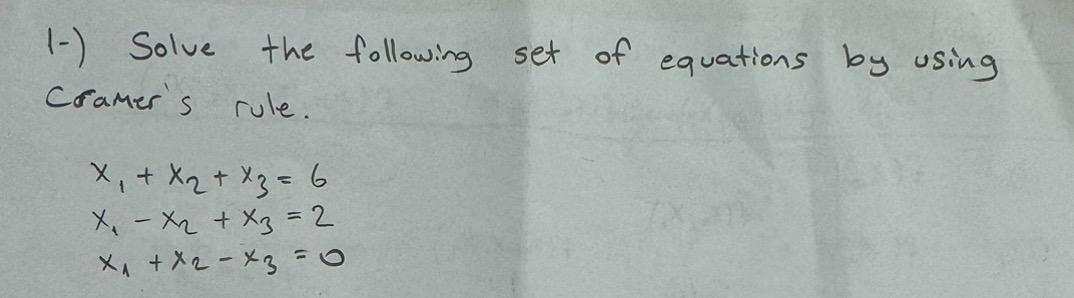 1-) Solve the following set of equations by using
Cramer's rule.
x₁ + x₂ + x₃ = 6
x₁ - x₂ + x₃ = 2
x₁ + x₂ - x₃ = 0